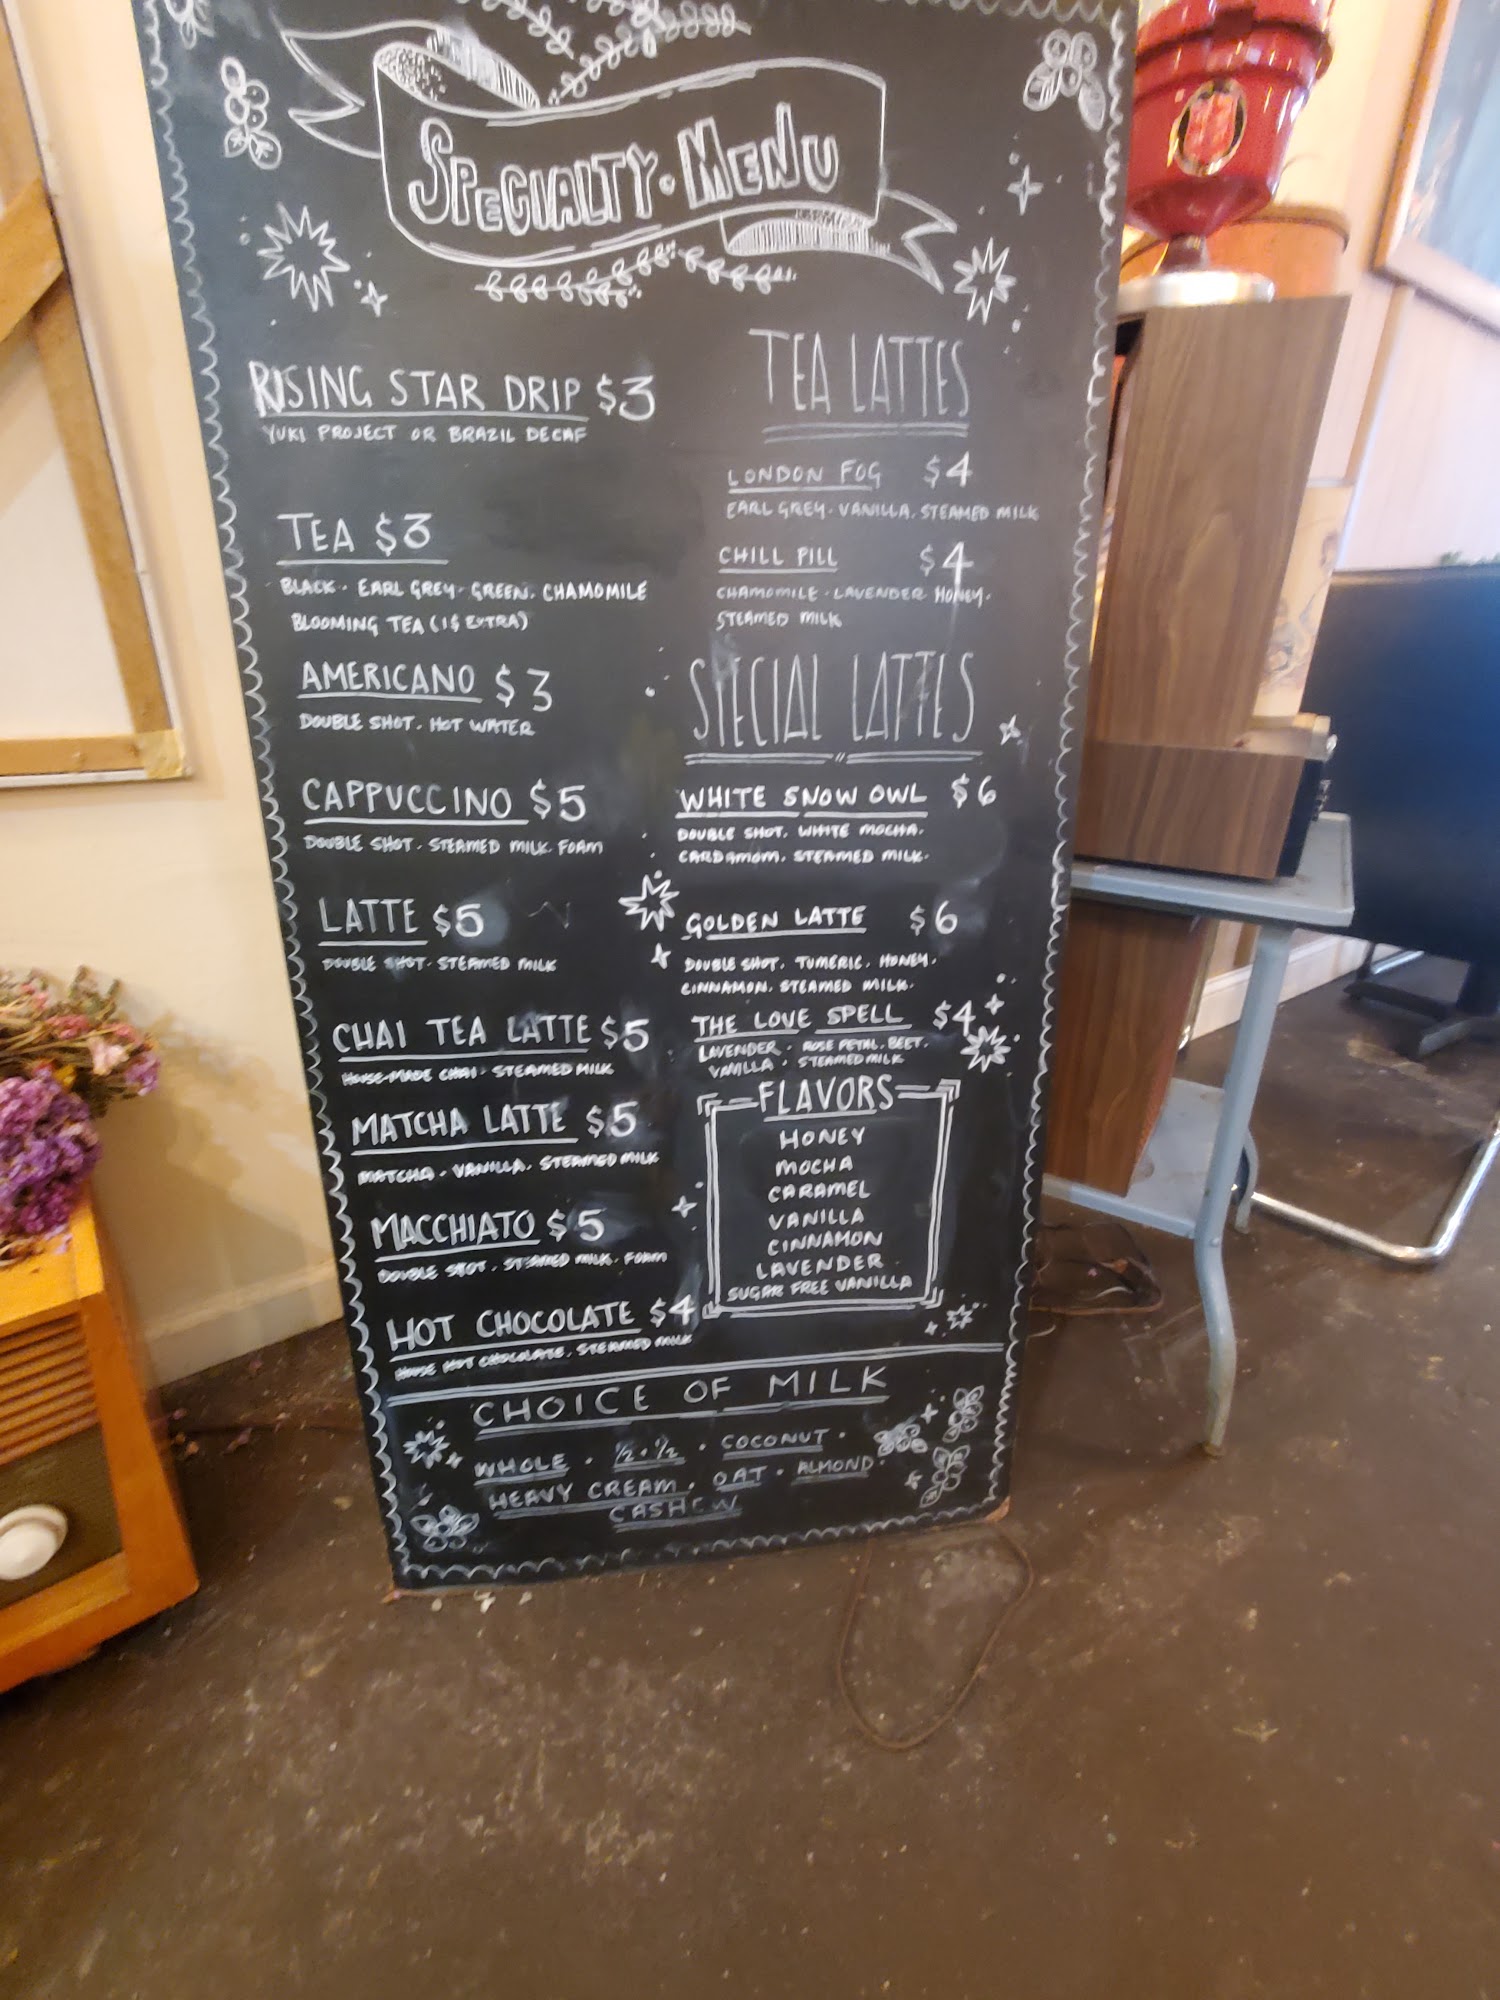 SPECIALTY · MENU
RISING STAR DRIP $3
YUKI PROJECT OR BRAZIL DECAF
TEA $3
BLACK · EARL GREY · GREEN · CHAMOMILE
BLOOMING TEA (1$ EXTRA)
AMERICANO $3
DOUBLE SHOT · HOT WATER
CAPPUCCINO $5
DOUBLE SHOT · STEAMED MILK · FOAM
LATTE $5
DOUBLE SHOT · STEAMED MILK
CHAI TEA LATTE $5
HOUSE-MADE CHAI · STEAMED MILK
MATCHA LATTE $5
MATCHA · VANILLA · STEAMED MILK
MACCHIATO $5
DOUBLE SHOT · STEAMED MILK · FOAM
HOT CHOCOLATE $4
HOUSE HOT CHOCOLATE · STEAMED MILK
TEA LATTES
LONDON FOG $4
EARL GREY · VANILLA · STEAMED MILK
CHILL PILL $4
CHAMOMILE · LAVENDER HONEY ·
STEAMED MILK
SPECIAL LATTES
WHITE SNOW OWL $6
DOUBLE SHOT · WHITE MOCHA ·
CARDAMOM · STEAMED MILK ·
GOLDEN LATTE $6
DOUBLE SHOT · TUMERIC · HONEY ·
CINNAMON · STEAMED MILK ·
THE LOVE SPELL $4
LAVENDER · ROSE PETAL · BEET ·
VANILLA · STEAMED MILK
FLAVORS
HONEY
MOCHA
CARAMEL
VANILLA
CINNAMON
LAVENDER
SUGAR FREE VANILLA
CHOICE OF MILK
WHOLE · ½ · ½ · COCONUT ·
HEAVY CREAM · OAT · ALMOND ·
CASHEW